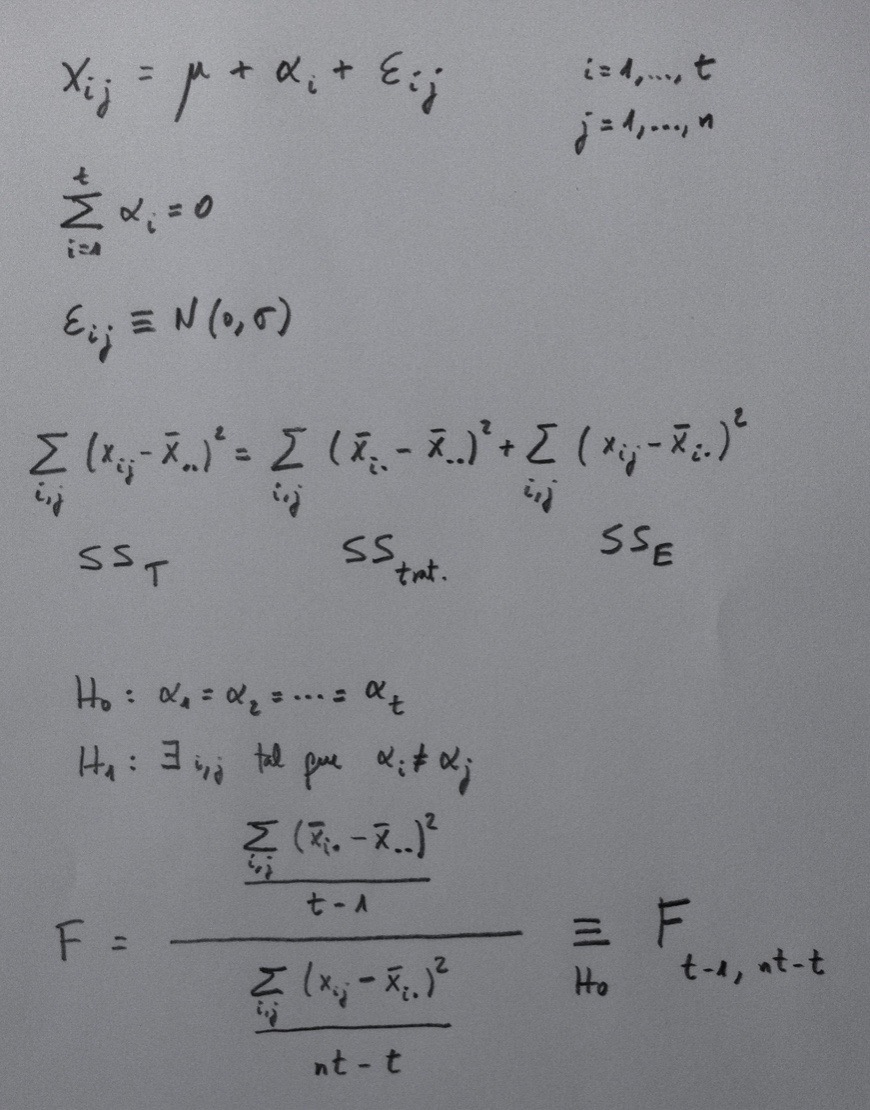 x_{ij} = μ + α_i + ε_{ij}    i=1,...,t
j=1,...,n
∑_{i=1}^{t} α_i = 0
ε_{ij} ≡ N(0,σ)
∑_{i,j} (x_{ij} - x̄_{..})² = ∑_{i,j} (x̄_{i.} - x̄_{..})² + ∑_{i,j} (x_{ij} - x̄_{i.})²
SS_T    SS_{tmt.}    SS_E
H_0 : α_1 = α_2 = ... = α_t
H_1 : ∃ i,j tal que α_i ≠ α_j
F = \frac{\frac{∑_{i,j} (x̄_{i.} - x̄_{..})²}{t-1}}{\frac{∑_{i,j} (x_{ij} - x̄_{i.})²}{nt-t}} ≡_{H_0} F_{t-1, nt-t}